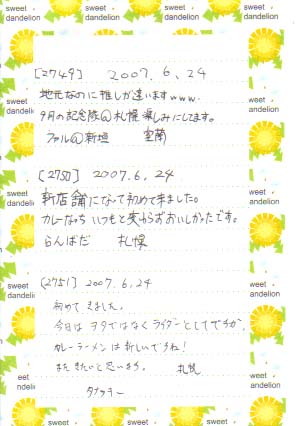 sweet dandelion
sweet dandelion
sweet dandelion
[2749] 2007.6.24
地元なのに推しが違いますwww.
9月の記念隊@札幌楽しみにしてます。
ファル@新垣 室蘭
[2750] 2007.6.24
新店舗になって初めて来ました。
カレーなっち いつもと変わらずおいしかったです。
らんばだ 札幌
[2751] 2007.6.24
初めてきました。
今日はヲタではなくライダーとしてですが、
カレーラーメンは新しいですね!
またきたいと思います。 札幌
sweet dandelion
sweet dandelion
sweet dandelion
sweet dandelion